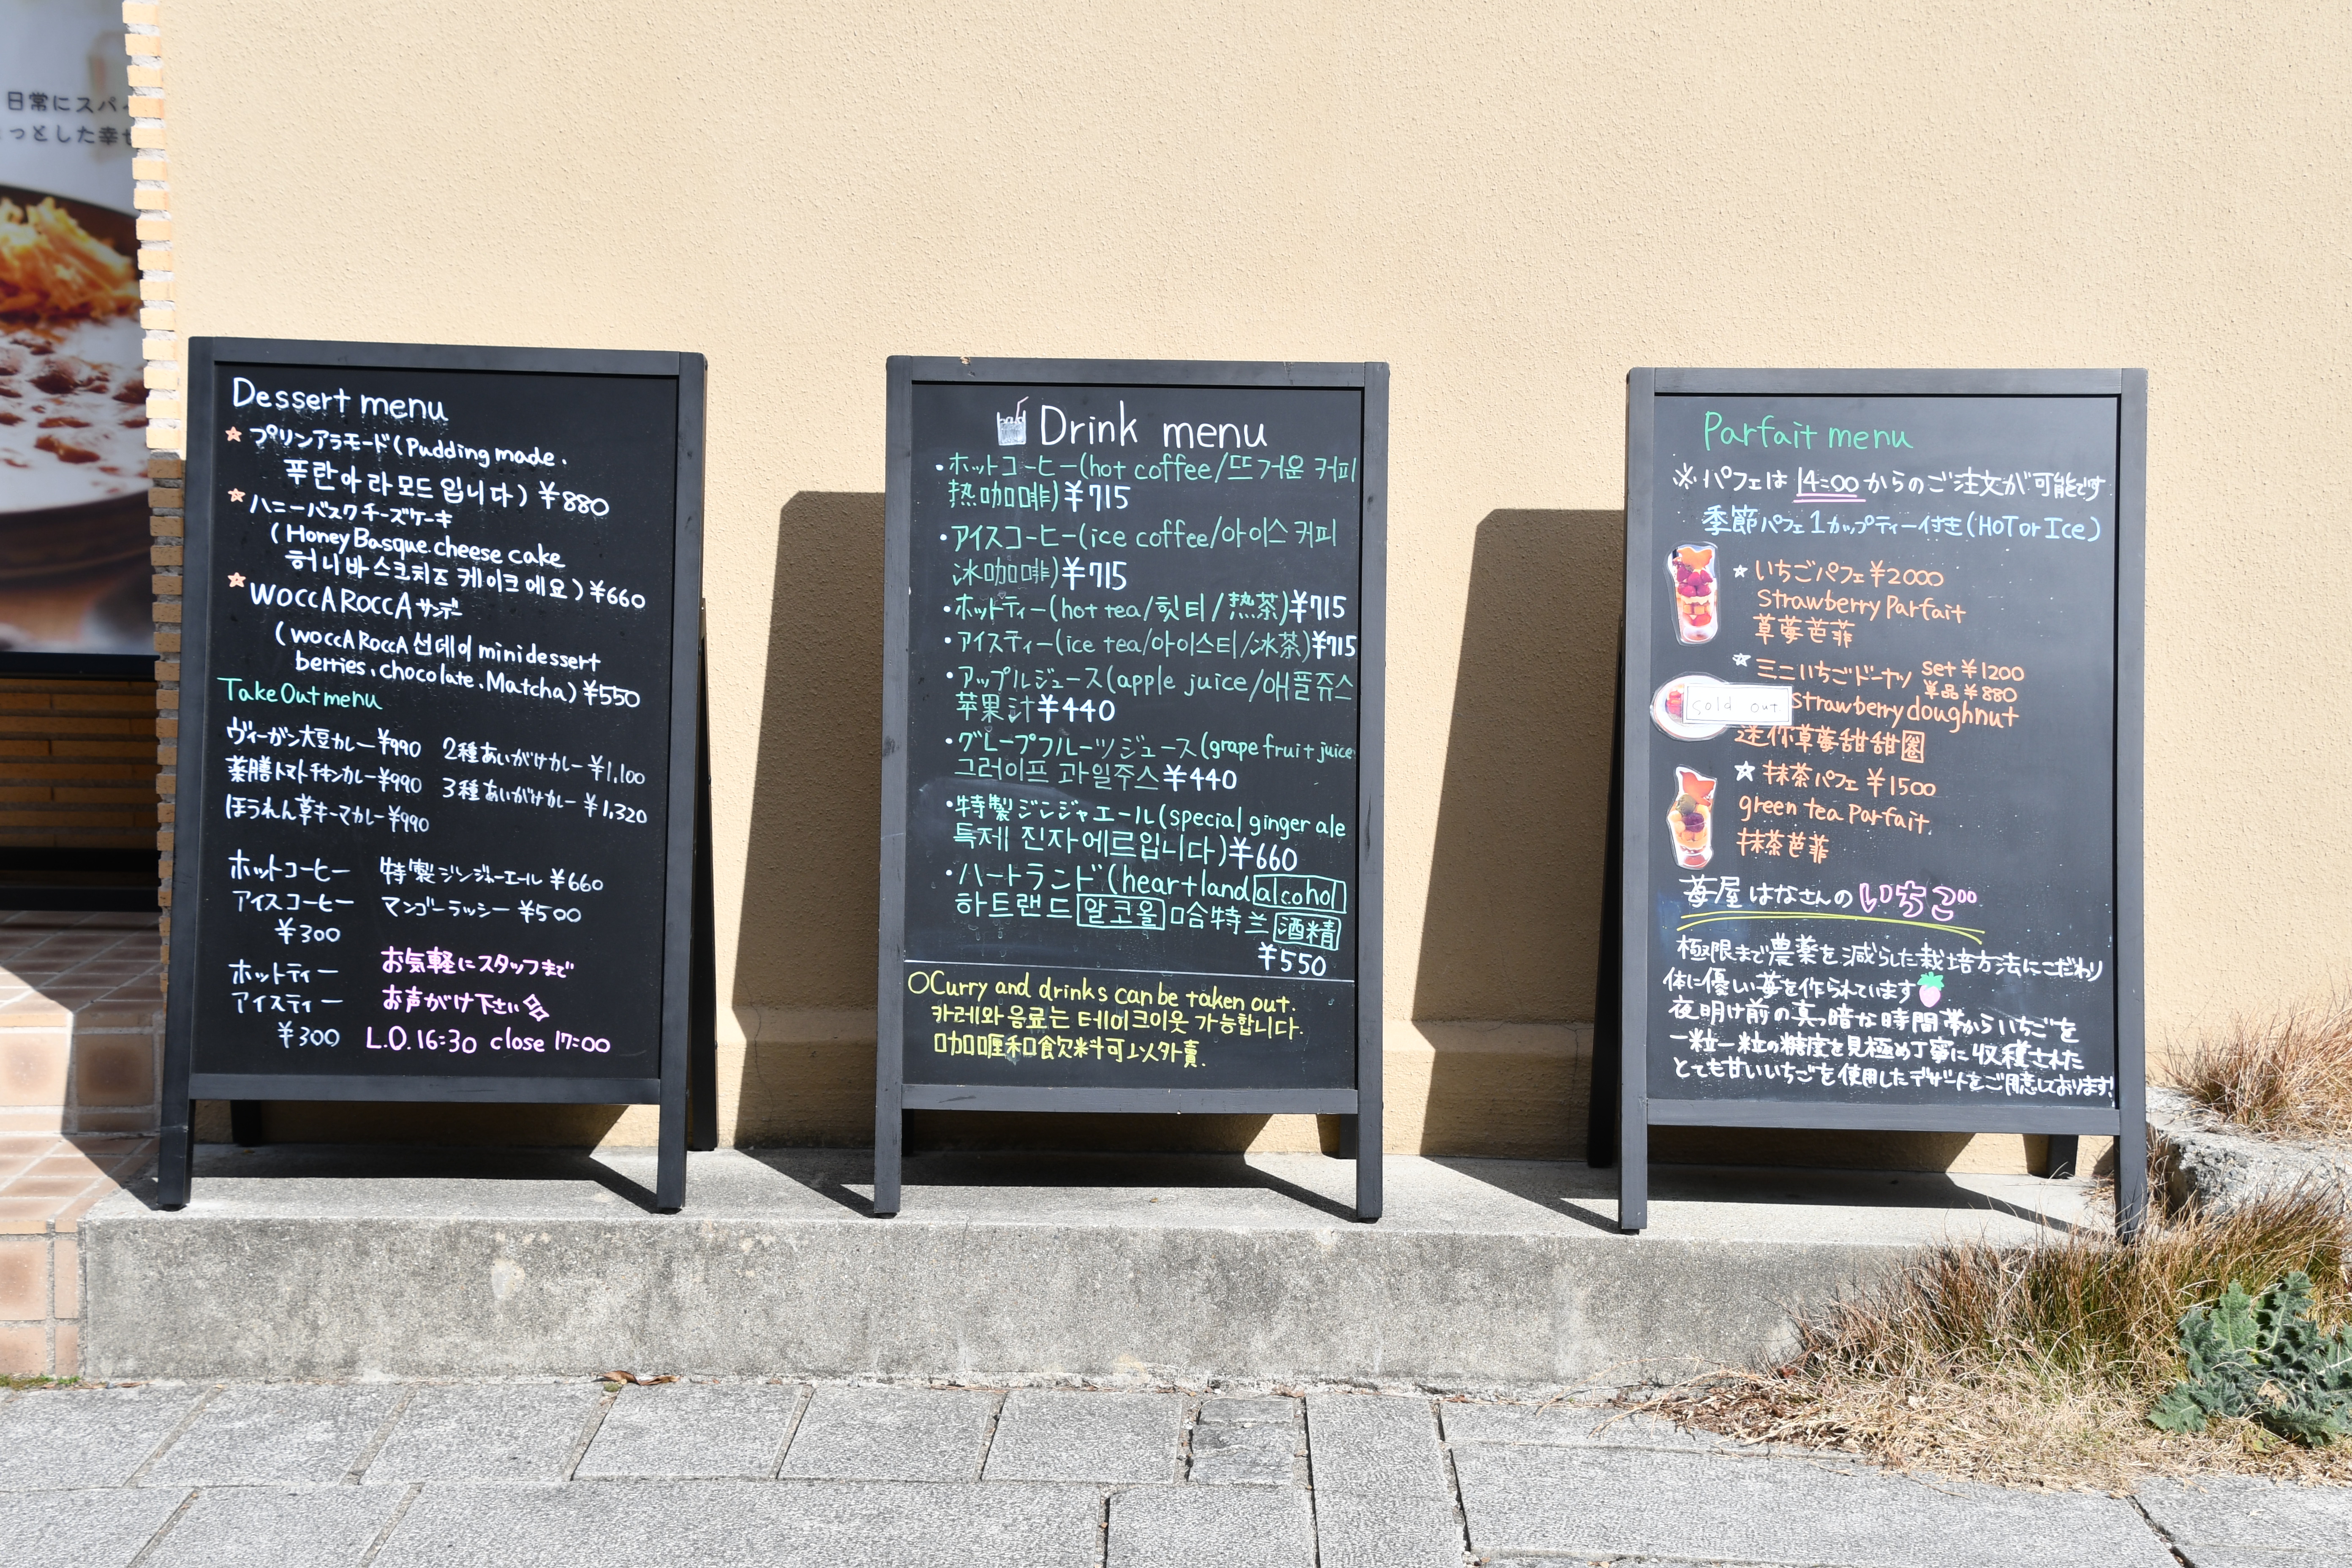 日常にスパイ
っとした幸せ
Dessert menu
プリンアラモード(Pudding made.
푸란아라모드입니다) ¥880
ハニーバスクチーズケーキ
(Honey Basque cheese cake
허니바스크치즈케이크에요) ¥660
WOCCA ROCCA サンデー
(WOCCA ROCCA 선데이 mini dessert
berries.chocolate.Matcha) ¥550
Take Out menu
ヴィーガン大豆カレー ¥990 2種あいがけカレー ¥1,100
薬膳トマトチキンカレー ¥990 3種あいがけカレー ¥1,320
ほうれん草キーマカレー ¥990
ホットコーヒー 特製ジンジャーエール ¥660
アイスコーヒー マンゴーラッシー ¥500
¥300
お気軽にスタッフまで
ホットティー
アイスティー お声がけ下さい
¥300 L.O.16:30 close 17:00
Drink menu
・ホットコーヒー(hot coffee/뜨거운 커피
热咖啡)¥715
・アイスコーヒー(ice coffee/아이스 커피
冰咖啡)¥715
・ホットティー(hot tea/힛티/熱茶)¥715
・アイスティー(ice tea/아이스티/冰茶)¥715
・アップルジュース(apple juice/애플쥬스
苹果汁¥440
・グレープフルーツジュース(grape fruit juice
그러이프 과일주스¥440
・特製ジンジャエール(special ginger ale
특제 진자에르입니다)¥660
・ハートランド(heartland alcohol
하트랜드 알코올 哈特兰 酒精
¥550
○Curry and drinks can be taken out.
카레와 음료는 테이크아웃 가능합니다.
咖喱和飲料可以外賣.
Parfait menu
※パフェは14:00からのご注文が可能です
季節パフェ1カップティー付き(HOT or Ice)
☆いちごパフェ ¥2000
Strawberry Parfait
草莓芭菲
☆ミニいちごドーナツ set ¥1200
単品 ¥880
sold out
strawberry doughnut
迷你草莓甜甜圈
☆抹茶パフェ ¥1500
green tea Parfait.
抹茶芭菲
苺屋はなさんのいちご
極限まで農薬を減らした栽培方法にこだわり
体に優しい苺を作られています
夜明け前の真っ暗な時間帯からいちごを
一粒一粒の糖度を見極め丁寧に収穫された
とても甘いいちごを使用したデザートをご用意しております!